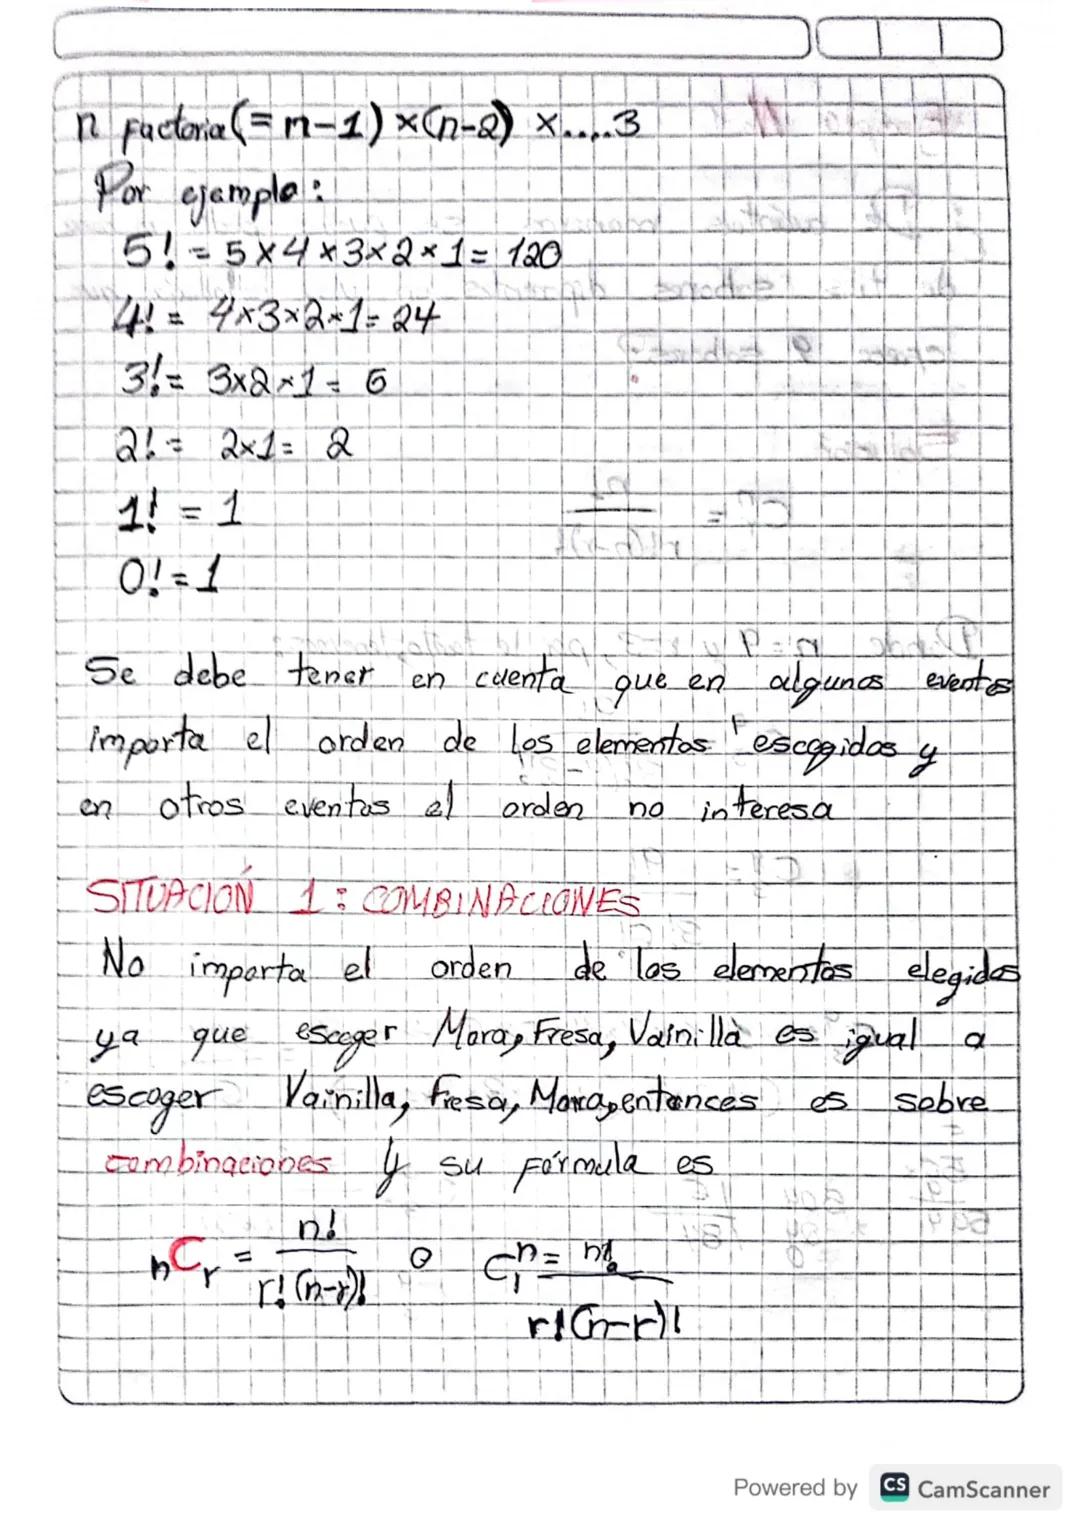 n factorial(=n-1)×(n-2) ×....3
Por ejemplo:
5! = 5×4×3×2×1= 120
4! = 4×3×2×1= 24
3! = 3×2×1= 6
2! = 2×1= 2
1! = 1
0! = 1
Se debe tener en cuenta que en algunos eventos
importa el orden de los elementos escogidos y
en otros eventos el orden no interesa
SITUACIÓN 1: COMBINACIONES
No importa el orden de los elementos elegidos
ya que escoger Mora, Fresa, Vainilla es igual a
escoger Vainilla, fresa, Mora, entonces es sobre
combinaciones y su fórmula es
nCr = n! / r!(n-r)! o C^n_r = n! / r!(n-r)!
Powered by CS CamScanner